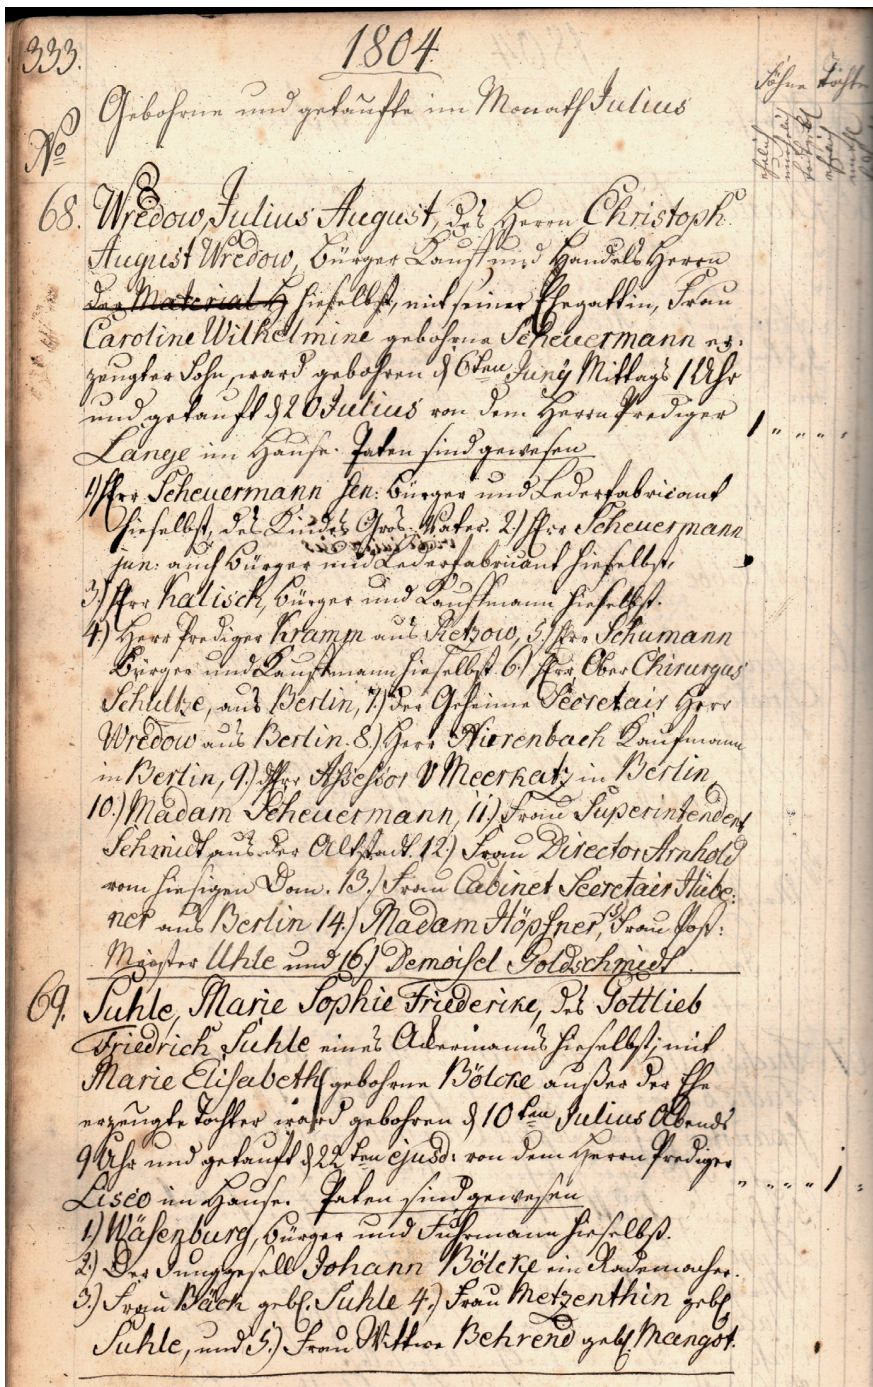 333.
1804.
Söhne Töchter
Gebohrne und getaufte im Monath Julius
No
68. Wredow, Julius August, des Herrn Christoph
August Wredow, Bürger Kauf und Handels Herrn
der Material H hieselbst, mit seiner Ehegattin, Frau
Caroline Wilhelmine gebohrne Scheuermann er:
zeugter Sohn, ward gebohren d 6ten Juny Mittags 1 Uhr
und getauft d 20 Julius von dem Herrn Prediger
1 " " " "
Lange im Hause. Paten sind gewesen
1) Herr Scheuermann sen: Bürger und Lederfabricant
hieselbst, des Kindes Gros-Vater. 2.) Herr Scheuermann
jun: auch Bürger und Lederfabricant hieselbst.
3.) Herr Kalisch, Bürger und Kauffmann hieselbst.
4.) Herr Prediger Kramp aus Retzow, 5.) Herr Schumann
Bürger und Kauffmann hieselbst 6.) Herr Ober Chirurgus
Schultze, aus Berlin, 7.) der Geheime Secretair Herr
Wredow aus Berlin. 8.) Herr Nierenbach Kaufmann
in Berlin, 9.) Herr Assessor V Meerkatz in Berlin,
10.) Madam Scheuermann, 11.) Frau Superintendent
Schmidt aus der Altstadt. 12.) Frau Director Arnhold
vom hiesigen Dom. 13.) Frau Cabinet Secretair Hübe:
ner aus Berlin 14.) Madam Höpfner, 15) Frau Post:
Meister Uhle und 16) Demoisel Goldschmidt.
69. Suhle, Marie Sophie Friederike, des Gottlieb
Friedrich Suhle eines Ackermanns hieselbst, mit
Marie Elisabeth gebohrne Bölcke außer der Ehe
erzeugte Tochter ward gebohren d 10ten Julius Abends
9 Uhr und getauft d 22ten ejusd: von dem Herrn Prediger
" " " " 1 "
Lisco im Hause. Paten sind gewesen
1.) Wäsenburg, Bürger und Fuhrmann hieselbst.
2.) Der Junggesell Johann Bölcke ein Rademacher.
3.) Frau Bäck gebl. Suhle 4.) Frau Metzenthin gebl
Suhle, und 5.) Frau Wittwe Behrend gebl. Mangot.